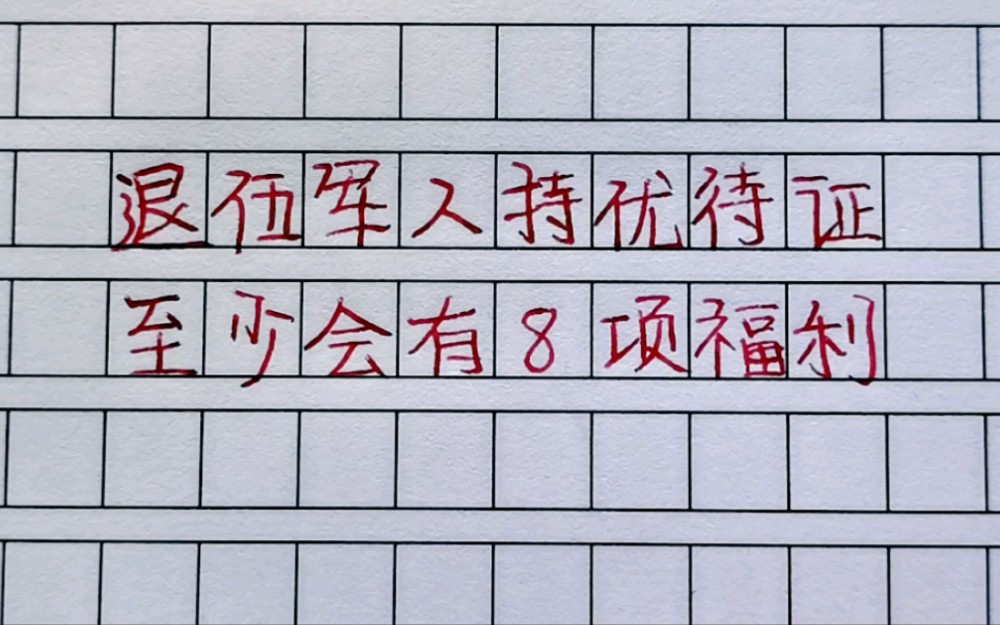 退伍军人持优待证
至少会有8项福利